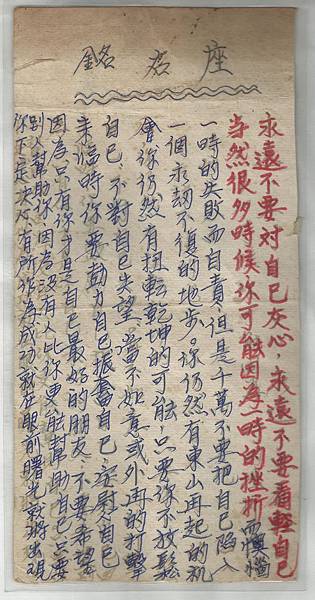 座右銘
永遠不要对自己灰心，永遠不要看輕自己
当然很多時候你可能因為一時的挫折而懊惱
一時的失敗而自責，但是千萬不要把自己陷入
一個永劫不復的地步。你仍然有東山再起的机
會你仍然有扭転乾坤的可能，只要你不放鬆
自己，不對自己失望。當不如意或外再的打擊
來臨時你要動力自己振奮自己安慰自己
因為只有你才是自己最好的朋友，不要希望
別人幫助你因為沒有人比你更能幫助自己只要
你下定決心有所作為成功就在眼前曙光就將出現